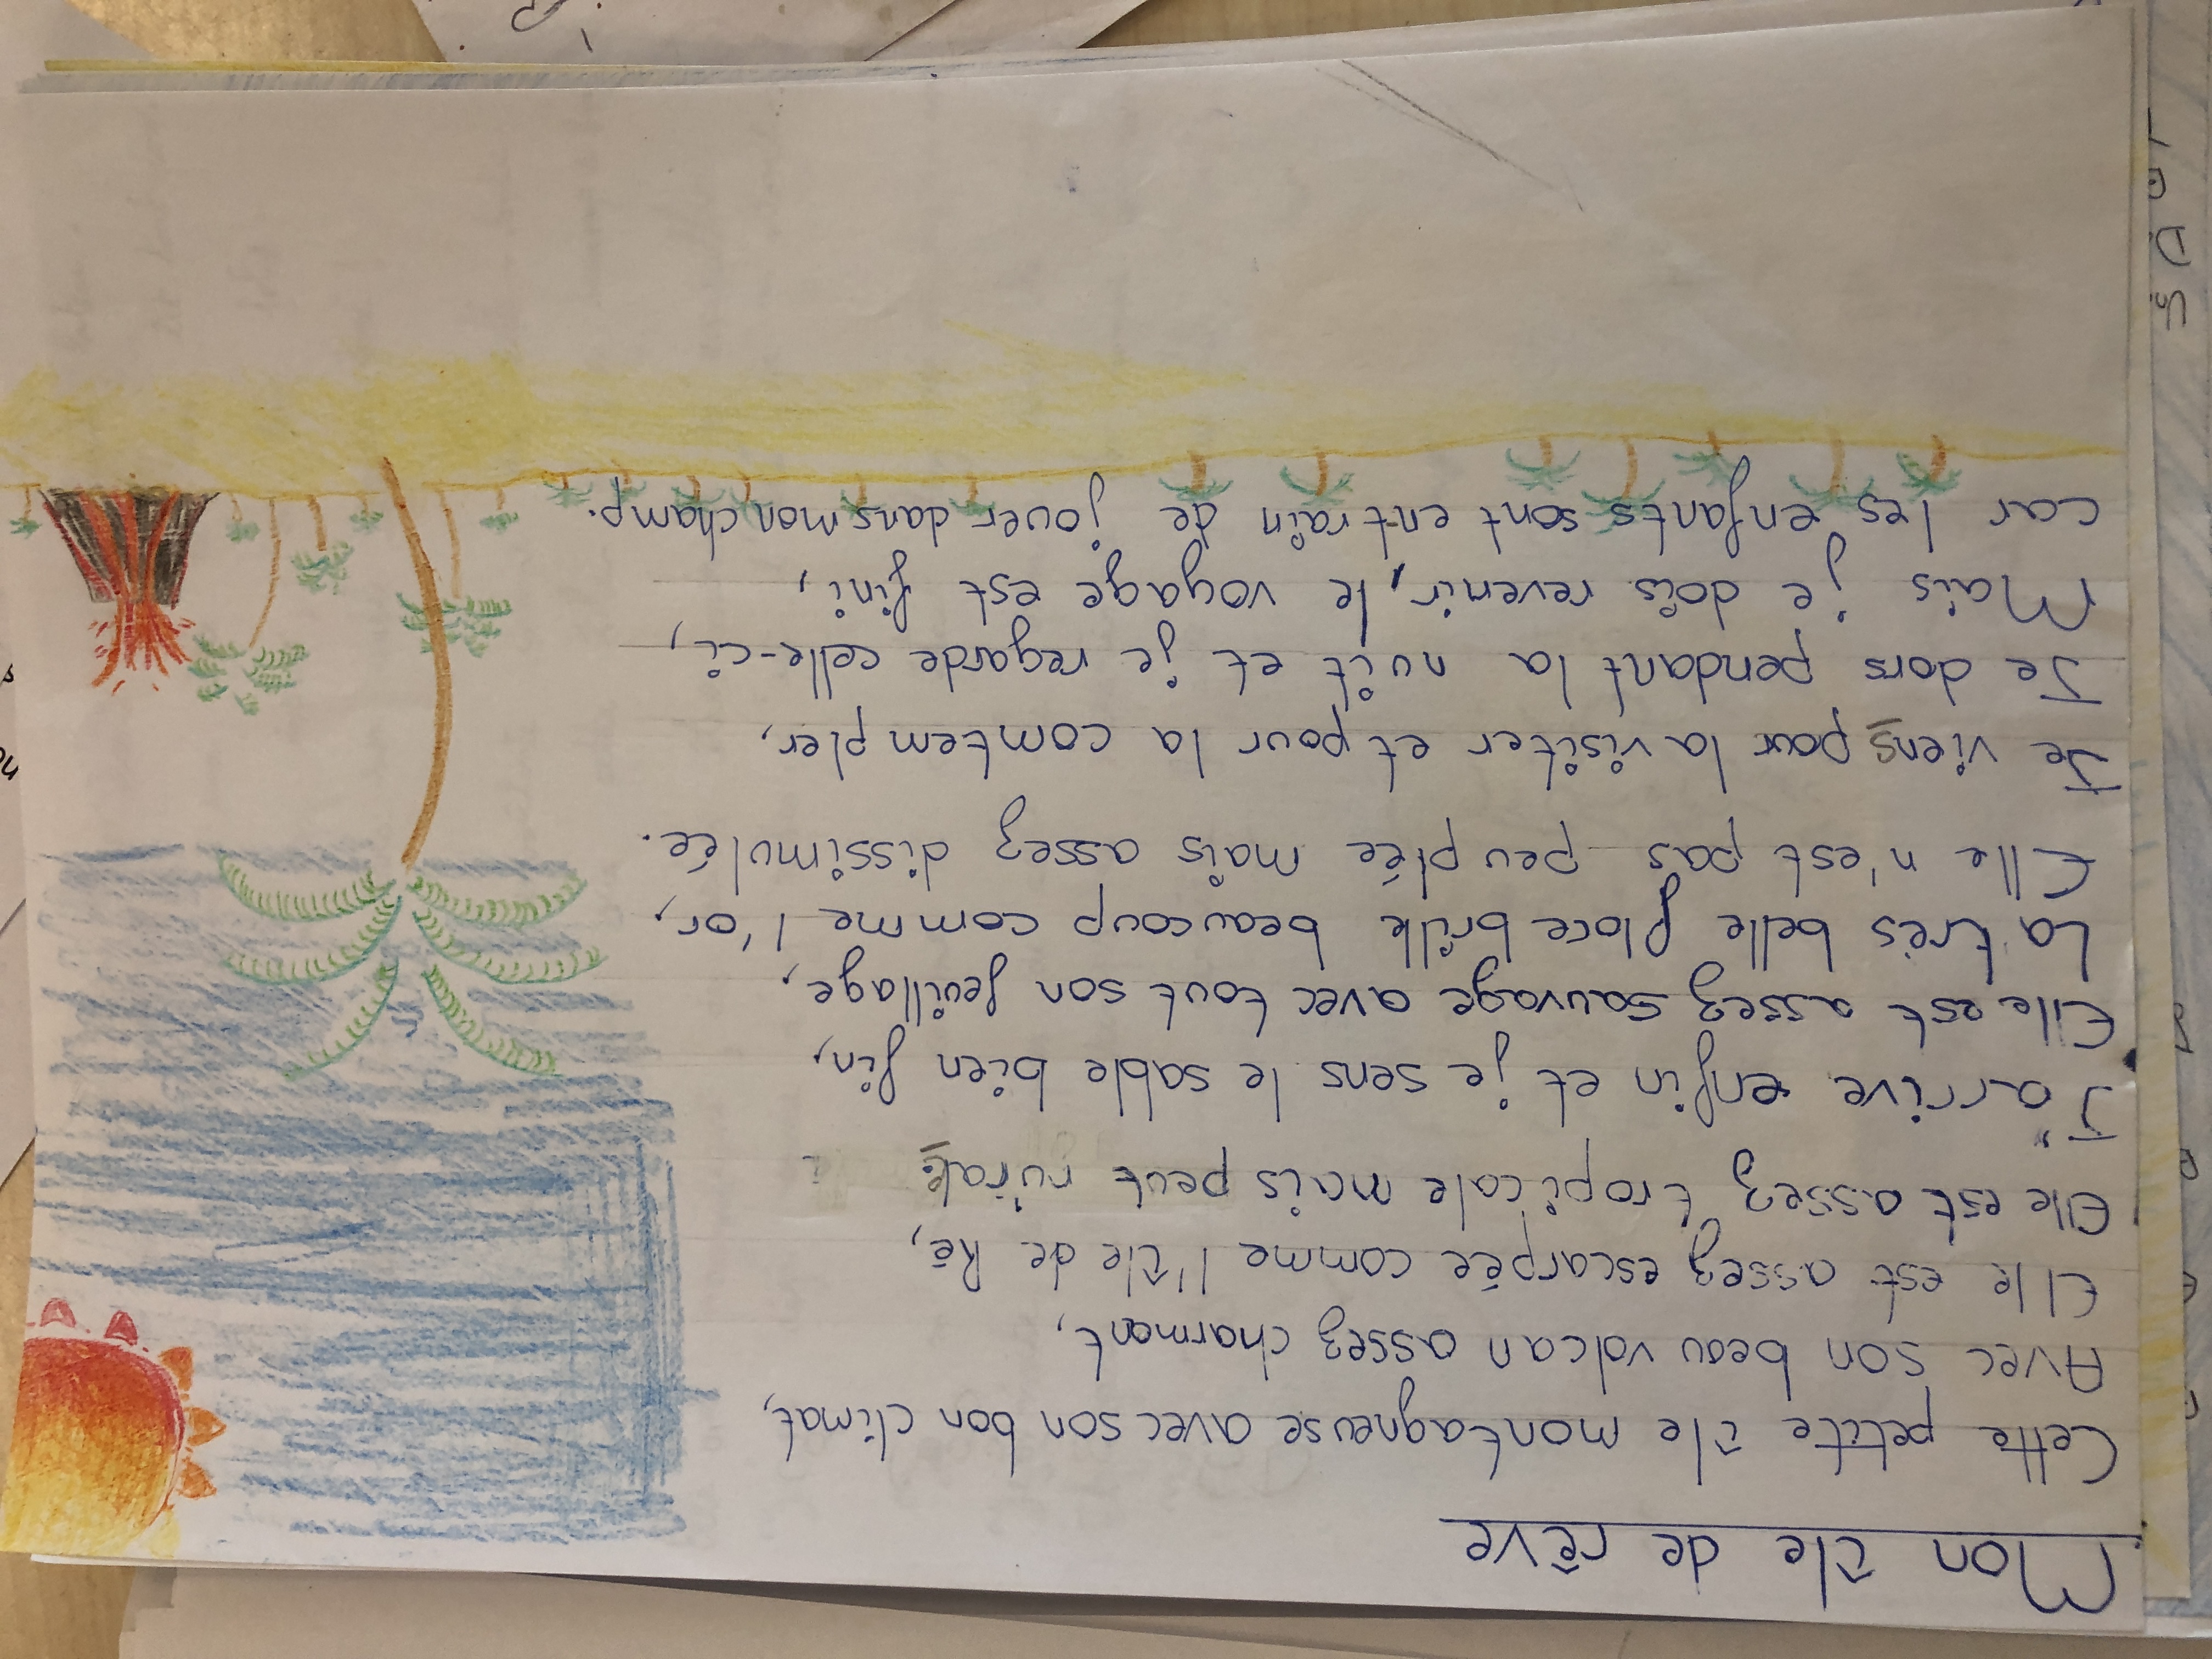 Mon île de rêve
Cette petite île montagneuse avec son bon climat,
Avec son beau volcan assez charmant,
Elle est assez escarpée comme l'île de Ré,
Elle est assez tropicale mais peut rurale
J'arrive enfin et je sens le sable bien fin,
Elle est assez sauvage avec tout son feuillage,
La très belle place brille beaucoup comme l'or,
Elle n'est pas peuplée mais assez dissimulée.
Je viens pour la visiter et pour la comtempler,
Je dors pendant la nuit et je regarde celle-ci,
Mais je dois revenir, le voyage est fini,
car les enfants sont entrain de jouer dans mon champ.